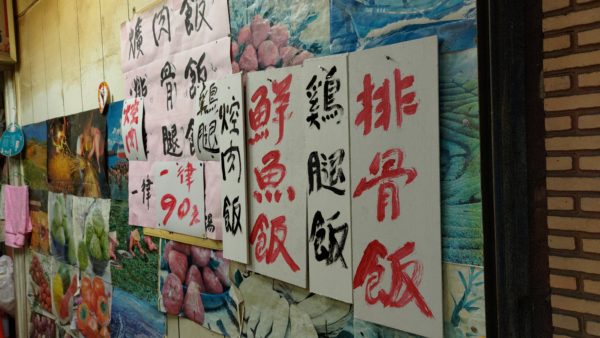 燒肉飯
排骨飯
雞腿飯
燒肉
一律
一律
90元
焢肉飯
鮮魚飯
雞腿飯
排骨飯